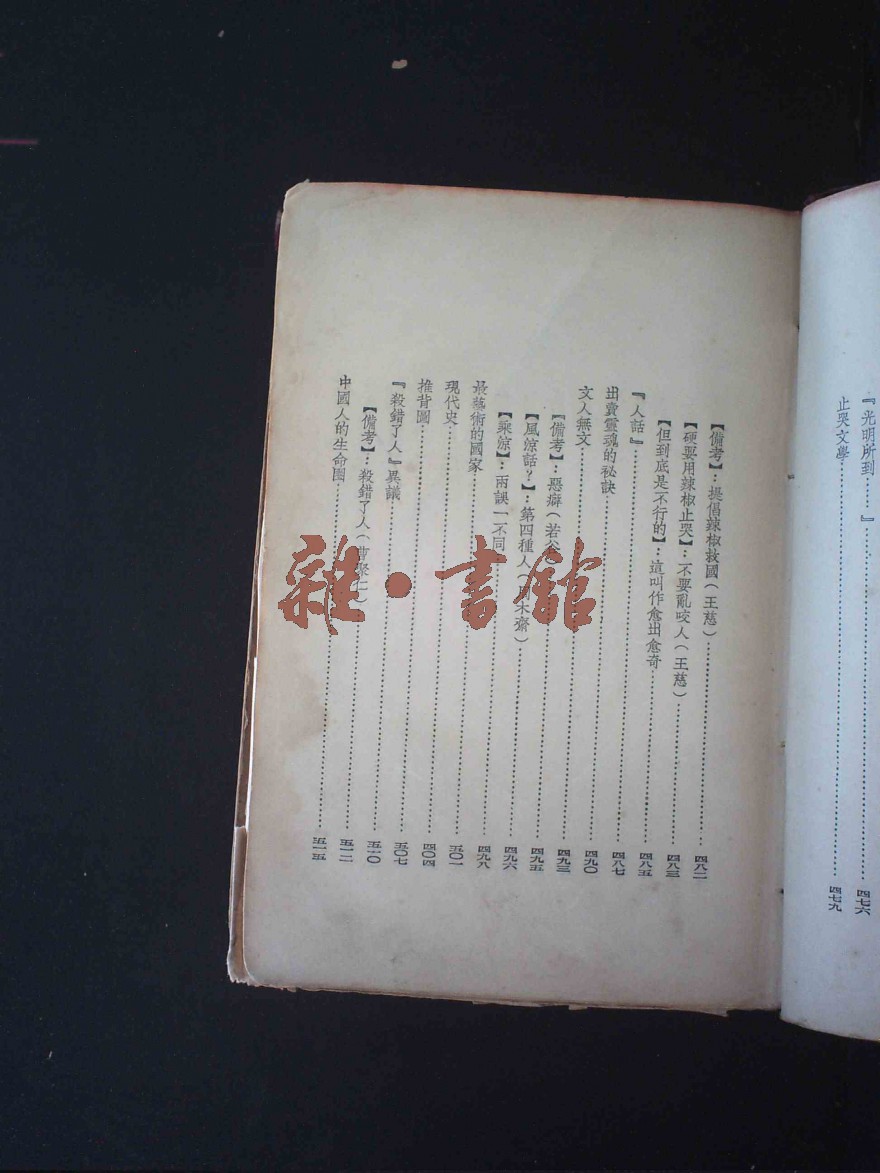 『光明所到……』……四七六
止哭文學……四七九
【備考】：提倡辣椒救國（王慈）……四八二
【硬要用辣椒止哭】：不要亂咬人（王慈）……四八三
【但到底是不行的】：這叫作愈出愈奇……四八五
『人話』……四八七
出賣靈魂的秘訣……四九〇
文人無文……四九三
【備考】：惡癖（若谷）……四九五
【風涼話？】：第四種人（木齋）……四九六
【乘涼】：兩誤一不同……四九八
最藝術的國家……五〇一
現代史……四〇四
推背圖……五〇七
『殺錯了人』異議……五一〇
【備考】：殺錯了人（曹聚仁）……五一二
中國人的生命圈……五一五
雜·書館